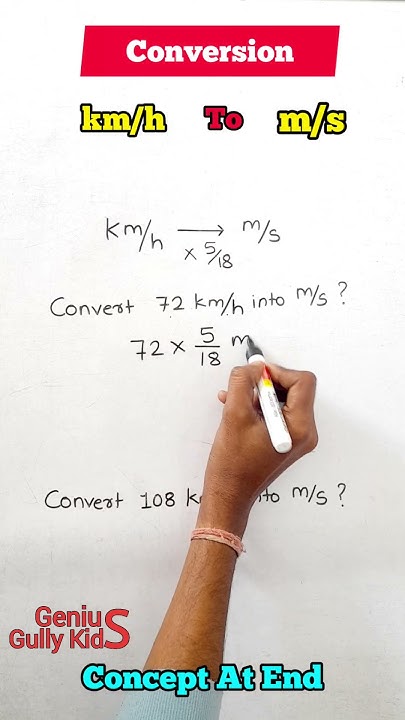 Conversion
km/h To m/s
km/h → m/s
× 5/18
Convert 72 km/h into m/s ?
72 × 5/18 m
Convert 108 k to m/s ?
Genius
Gully Kids
Concept At End